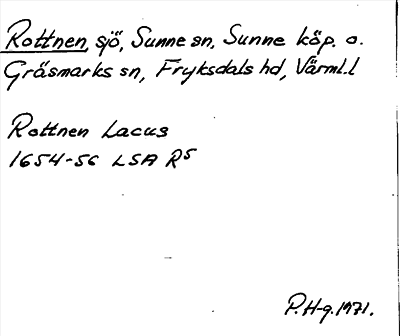 Rottnen, sjö, Sunne sn, Sunne köp. o.
Gräsmarks sn, Fryksdals hd, Värml.l
Rottnen Lacus
1654-56 LSA R5
P.H-g.1971.